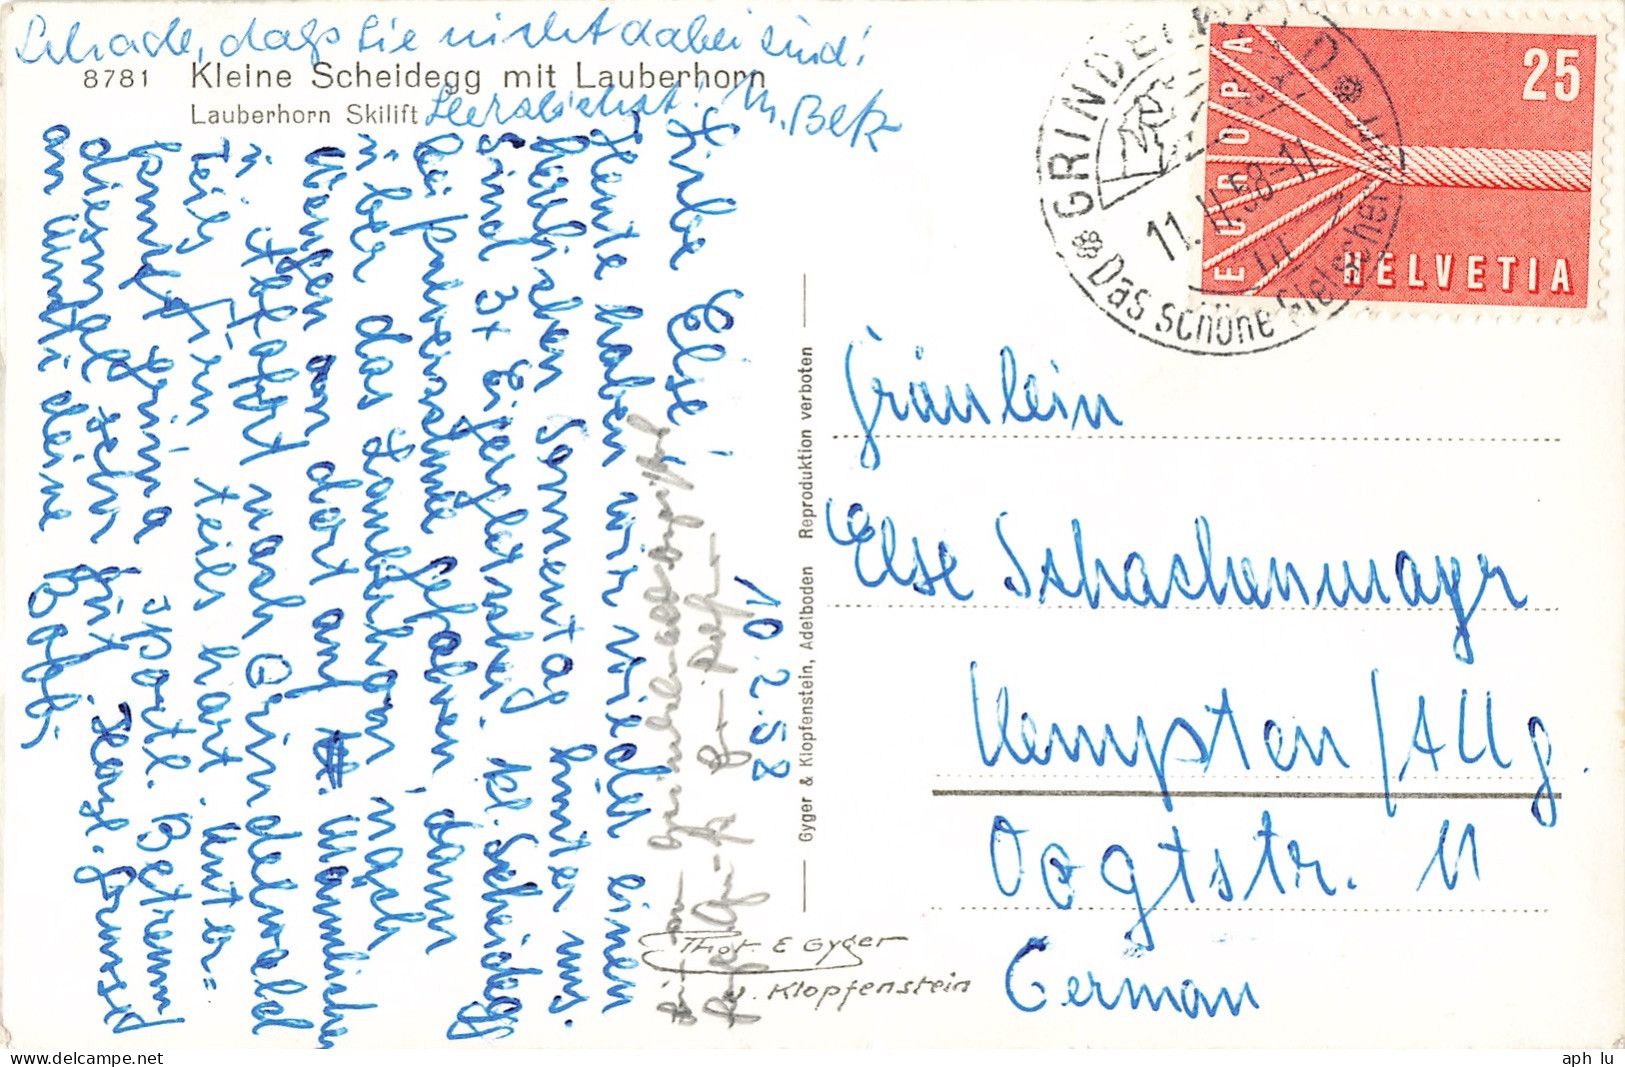 Schade, dass Sie nicht dabei sind!
8781 Kleine Scheidegg mit Lauberhorn
Lauberhorn Skilift
Herzlichst! M. Beck
10.2.58
Liebe Else!
Heute haben wir wieder einen
herrlichen Sonnentag hinter uns.
Sind 3x Eigergletscher, kl. Scheidegg
bei pulverschnee gefahren, dann
über das Lauberhorn nach
Wengen von dort auf Männlichen
u. Abfahrt nach Grindelwald
Teils Firn, teils hart. Unter-
kunft prima sportl. Betreuung
diesmal sehr gut. Herzl. Grüsse
an Mutti deine Bobbi
Gyger & Klopfenstein, Adelboden Reproduktion verboten
Phot. E Gyger
u. Klopfenstein
GRINDELWALD
11.II.58-11
Das schöne Gletscher
EUROPA
25
HELVETIA
Fräulein
Else Schachenmayr
Kempten/Allg.
Vogtstr. 11
German
aph lu